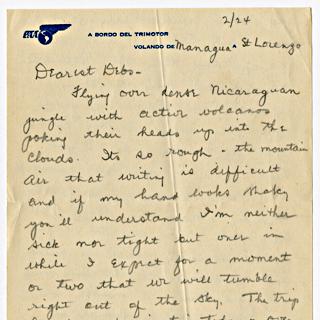 2/24
PAA
A BORDO DEL TRIMOTOR
VOLANDO DE Managua A St Lorenzo
Dearest Debs-
Flying over dense Nicaraguan
jungle with active volcanos
poking their heads up into the
clouds. Its so rough - the mountain
air that writing is difficult
and if my hand looks shaky
you'll understand I'm neither
sick nor tight but once in
while I expect for a moment
or two that we will tumble
right out of the sky. The trip